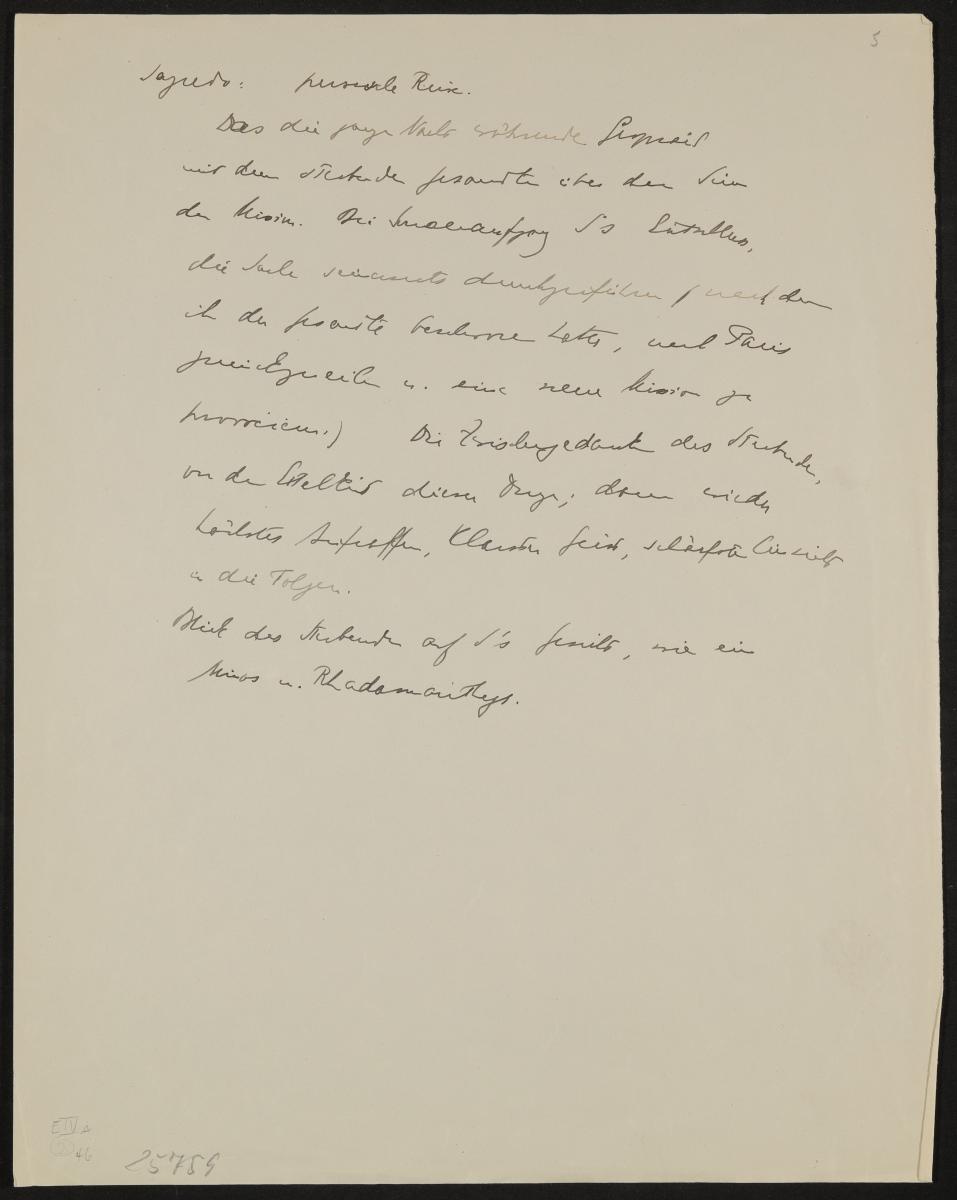 5
Sagredo: persische Reise.
Das die ganze Nacht während Gespräch
mit dem sterbenden Gesandten über den Sinn
der Mission. Bei Sonnenaufgang S's Entschluss,
die Sache seinerseits durchzuführen (nachdem
ihn der Gesandte beschworen hatte, nach Paris
zurückzueilen u. eine neue Mission zu
provociren.) Die Zwischengedanken des Sterbenden,
von der Eitelkeit dieser Dinge; dann wieder
höchstes Aufraffen, klarster Geist, schärfste Einsicht
in die Folgen.
Blick des Sterbenden auf S's Gesicht, wie ein
Minos u. Rhadamanthys.
E IV A
46
25759